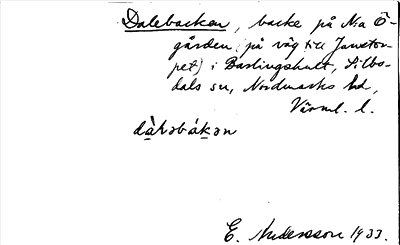 Dalebacken, backe på N:a Ö-
gården (på väg till Janetor-
pet) i Barlingshult, Silbo-
dals sn, Nordmarks hd,
Värml. l.
dàləbákən
E. Andersson 1933.